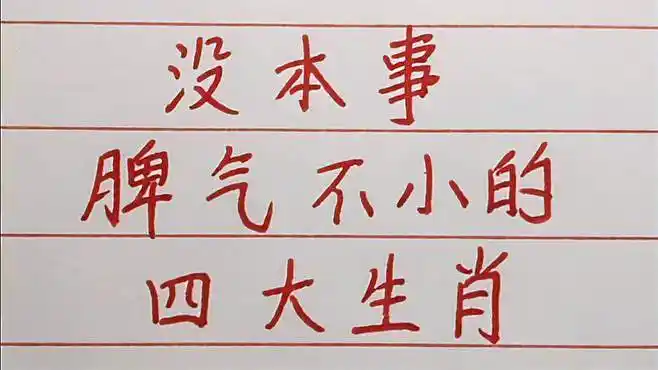 没本事
脾气不小的
四大生肖